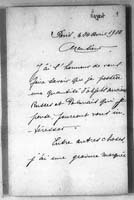 Paris, le 30 Avril 1908
Monsieur
J'ai l'honneur de vous
faire savoir que je possède
une quantité d'objets anciens
Russes et Polonais qui, je
pense, pourront vous in-
téresser
Entre autres choses,
j'ai une gravure